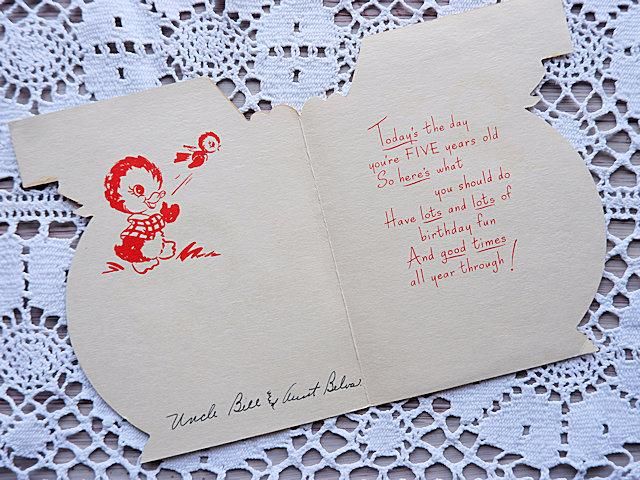 Today's the day
you're FIVE years old
So here's what
you should do
Have lots and lots of
birthday fun
And good times
all year through!
Uncle Bill & Aunt Belva